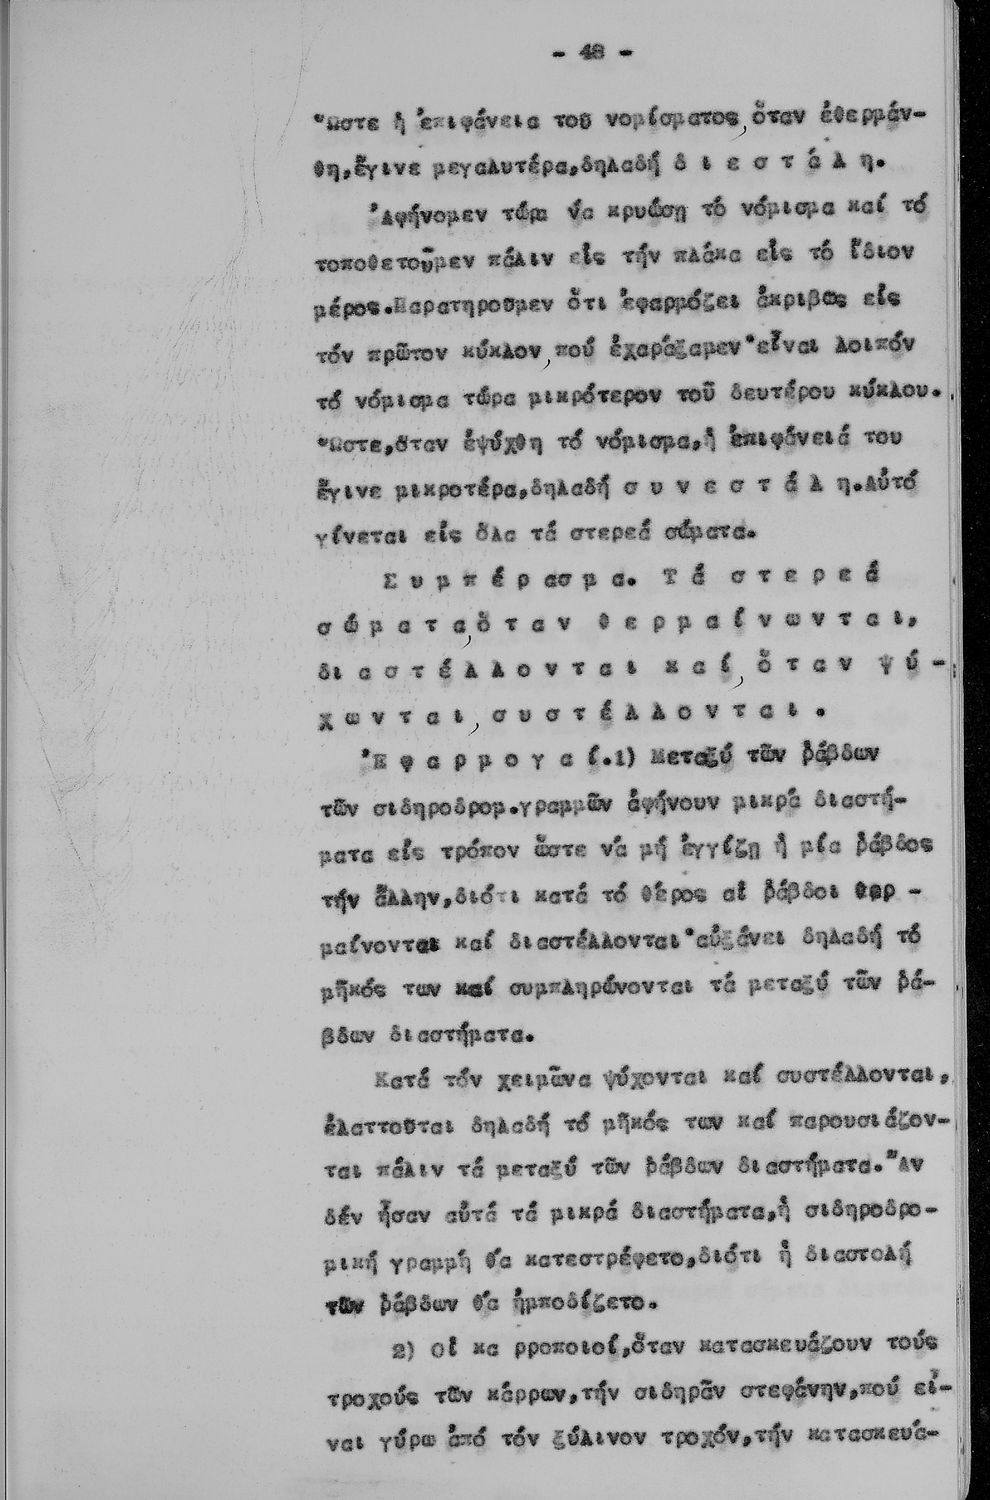 - 48 -
Ὥστε ἡ ἐπιφάνεια τοῦ νομίσματος, ὅταν ἐθερμάν-
θη, ἔγινε μεγαλυτέρα, δηλαδή δ ι ε σ τ ά λ η.
Ἀφήνομεν τώρα νά κρυώσῃ τό νόμισμα καί τό
τοποθετοῦμεν πάλιν εἰς τήν πλάκα εἰς τό ἴδιον
μέρος. Παρατηροῦμεν ὅτι ἐφαρμόζει ἀκριβῶς εἰς
τόν πρῶτον κύκλον, πού ἐχαράξαμεν· εἶναι λοιπόν
τό νόμισμα τώρα μικρότερον τοῦ δευτέρου κύκλου.
Ὥστε, ὅταν ἐψύχθη τό νόμισμα, ἡ ἐπιφάνειά του
ἔγινε μικροτέρα, δηλαδή σ υ ν ε σ τ ά λ η. Αὐτό
γίνεται εἰς ὅλα τά στερεά σώματα.
Σ υ μ π έ ρ α σ μ α. Τ ά σ τ ε ρ ε ά
σ ώ μ α τ α, ὅ τ α ν θ ε ρ μ α ί ν ω ν τ α ι,
δ ι α σ τ έ λ λ ο ν τ α ι κ α ί, ὅ τ α ν ψ ύ -
χ ω ν τ α ι, σ υ σ τ έ λ λ ο ν τ α ι.
Ἐ φ α ρ μ ο γ α ί. 1) Μεταξύ τῶν ῥάβδων
τῶν σιδηροδρομ. γραμμῶν ἀφήνουν μικρά διαστή-
ματα εἰς τρόπον ὥστε νά μή ἐγγίζῃ ἡ μία ῥάβδος
τήν ἄλλην, διότι κατά τό θέρος αἱ ῥάβδοι θερ -
μαίνονται καί διαστέλλονται· αὐξάνει δηλαδή τό
μῆκός των καί συμπληρώνονται τά μεταξύ τῶν ῥά-
βδων διαστήματα.
Κατά τόν χειμῶνα ψύχονται καί συστέλλονται,
ἐλαττοῦται δηλαδή τό μῆκός των καί παρουσιάζον-
ται πάλιν τά μεταξύ τῶν ῥάβδων διαστήματα. Ἄν
δέν ἦσαν αὐτά τά μικρά διαστήματα, ἡ σιδηροδρο-
μική γραμμή θά κατεστρέφετο, διότι ἡ διαστολή
τῶν ῥάβδων θά ἠμποδίζετο.
2) Οἱ κα ρροποιοί, ὅταν κατασκευάζουν τούς
τροχούς τῶν κάρρων, τήν σιδηρᾶν στεφάνην, πού εἶ-
ναι γύρω ἀπό τόν ξύλινον τροχόν, τήν κατασκευά-